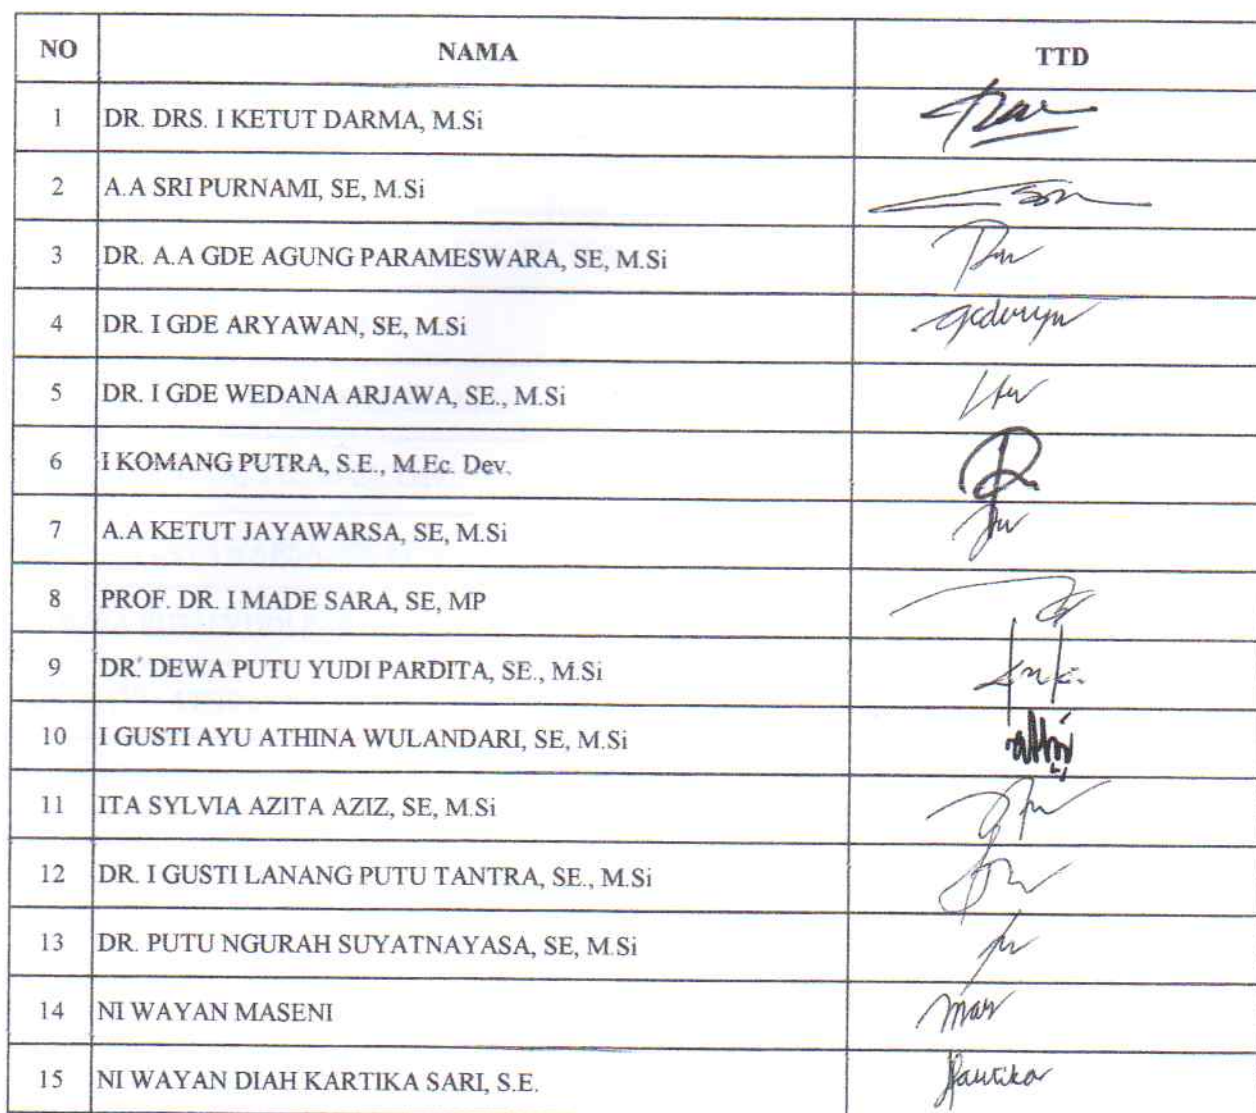 NO NAMA TTD
1 DR. DRS. I KETUT DARMA, M.Si
2 A.A SRI PURNAMI, SE, M.Si
3 DR. A.A GDE AGUNG PARAMESWARA, SE, M.Si
4 DR. I GDE ARYAWAN, SE, M.Si
5 DR. I GDE WEDANA ARJAWA, SE., M.Si
6 I KOMANG PUTRA, S.E., M.Ec. Dev.
7 A.A KETUT JAYAWARSA, SE, M.Si
8 PROF. DR. I MADE SARA, SE, MP
9 DR. DEWA PUTU YUDI PARDITA, SE., M.Si
10 I GUSTI AYU ATHINA WULANDARI, SE, M.Si
11 ITA SYLVIA AZITA AZIZ, SE, M.Si
12 DR. I GUSTI LANANG PUTU TANTRA, SE., M.Si
13 DR. PUTU NGURAH SUYATNAYASA, SE, M.Si
14 NI WAYAN MASENI
15 NI WAYAN DIAH KARTIKA SARI, S.E.